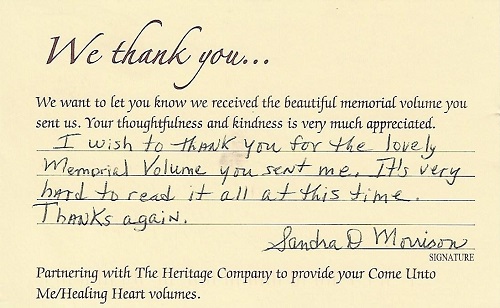 We thank you...
We want to let you know we received the beautiful memorial volume you
sent us. Your thoughtfulness and kindness is very much appreciated.
I wish to thank you for the lovely
Memorial Volume you sent me. It's very
hard to read it all at this time.
Thanks again.
Sandra D Morrison
SIGNATURE
Partnering with The Heritage Company to provide your Come Unto
Me/Healing Heart volumes.